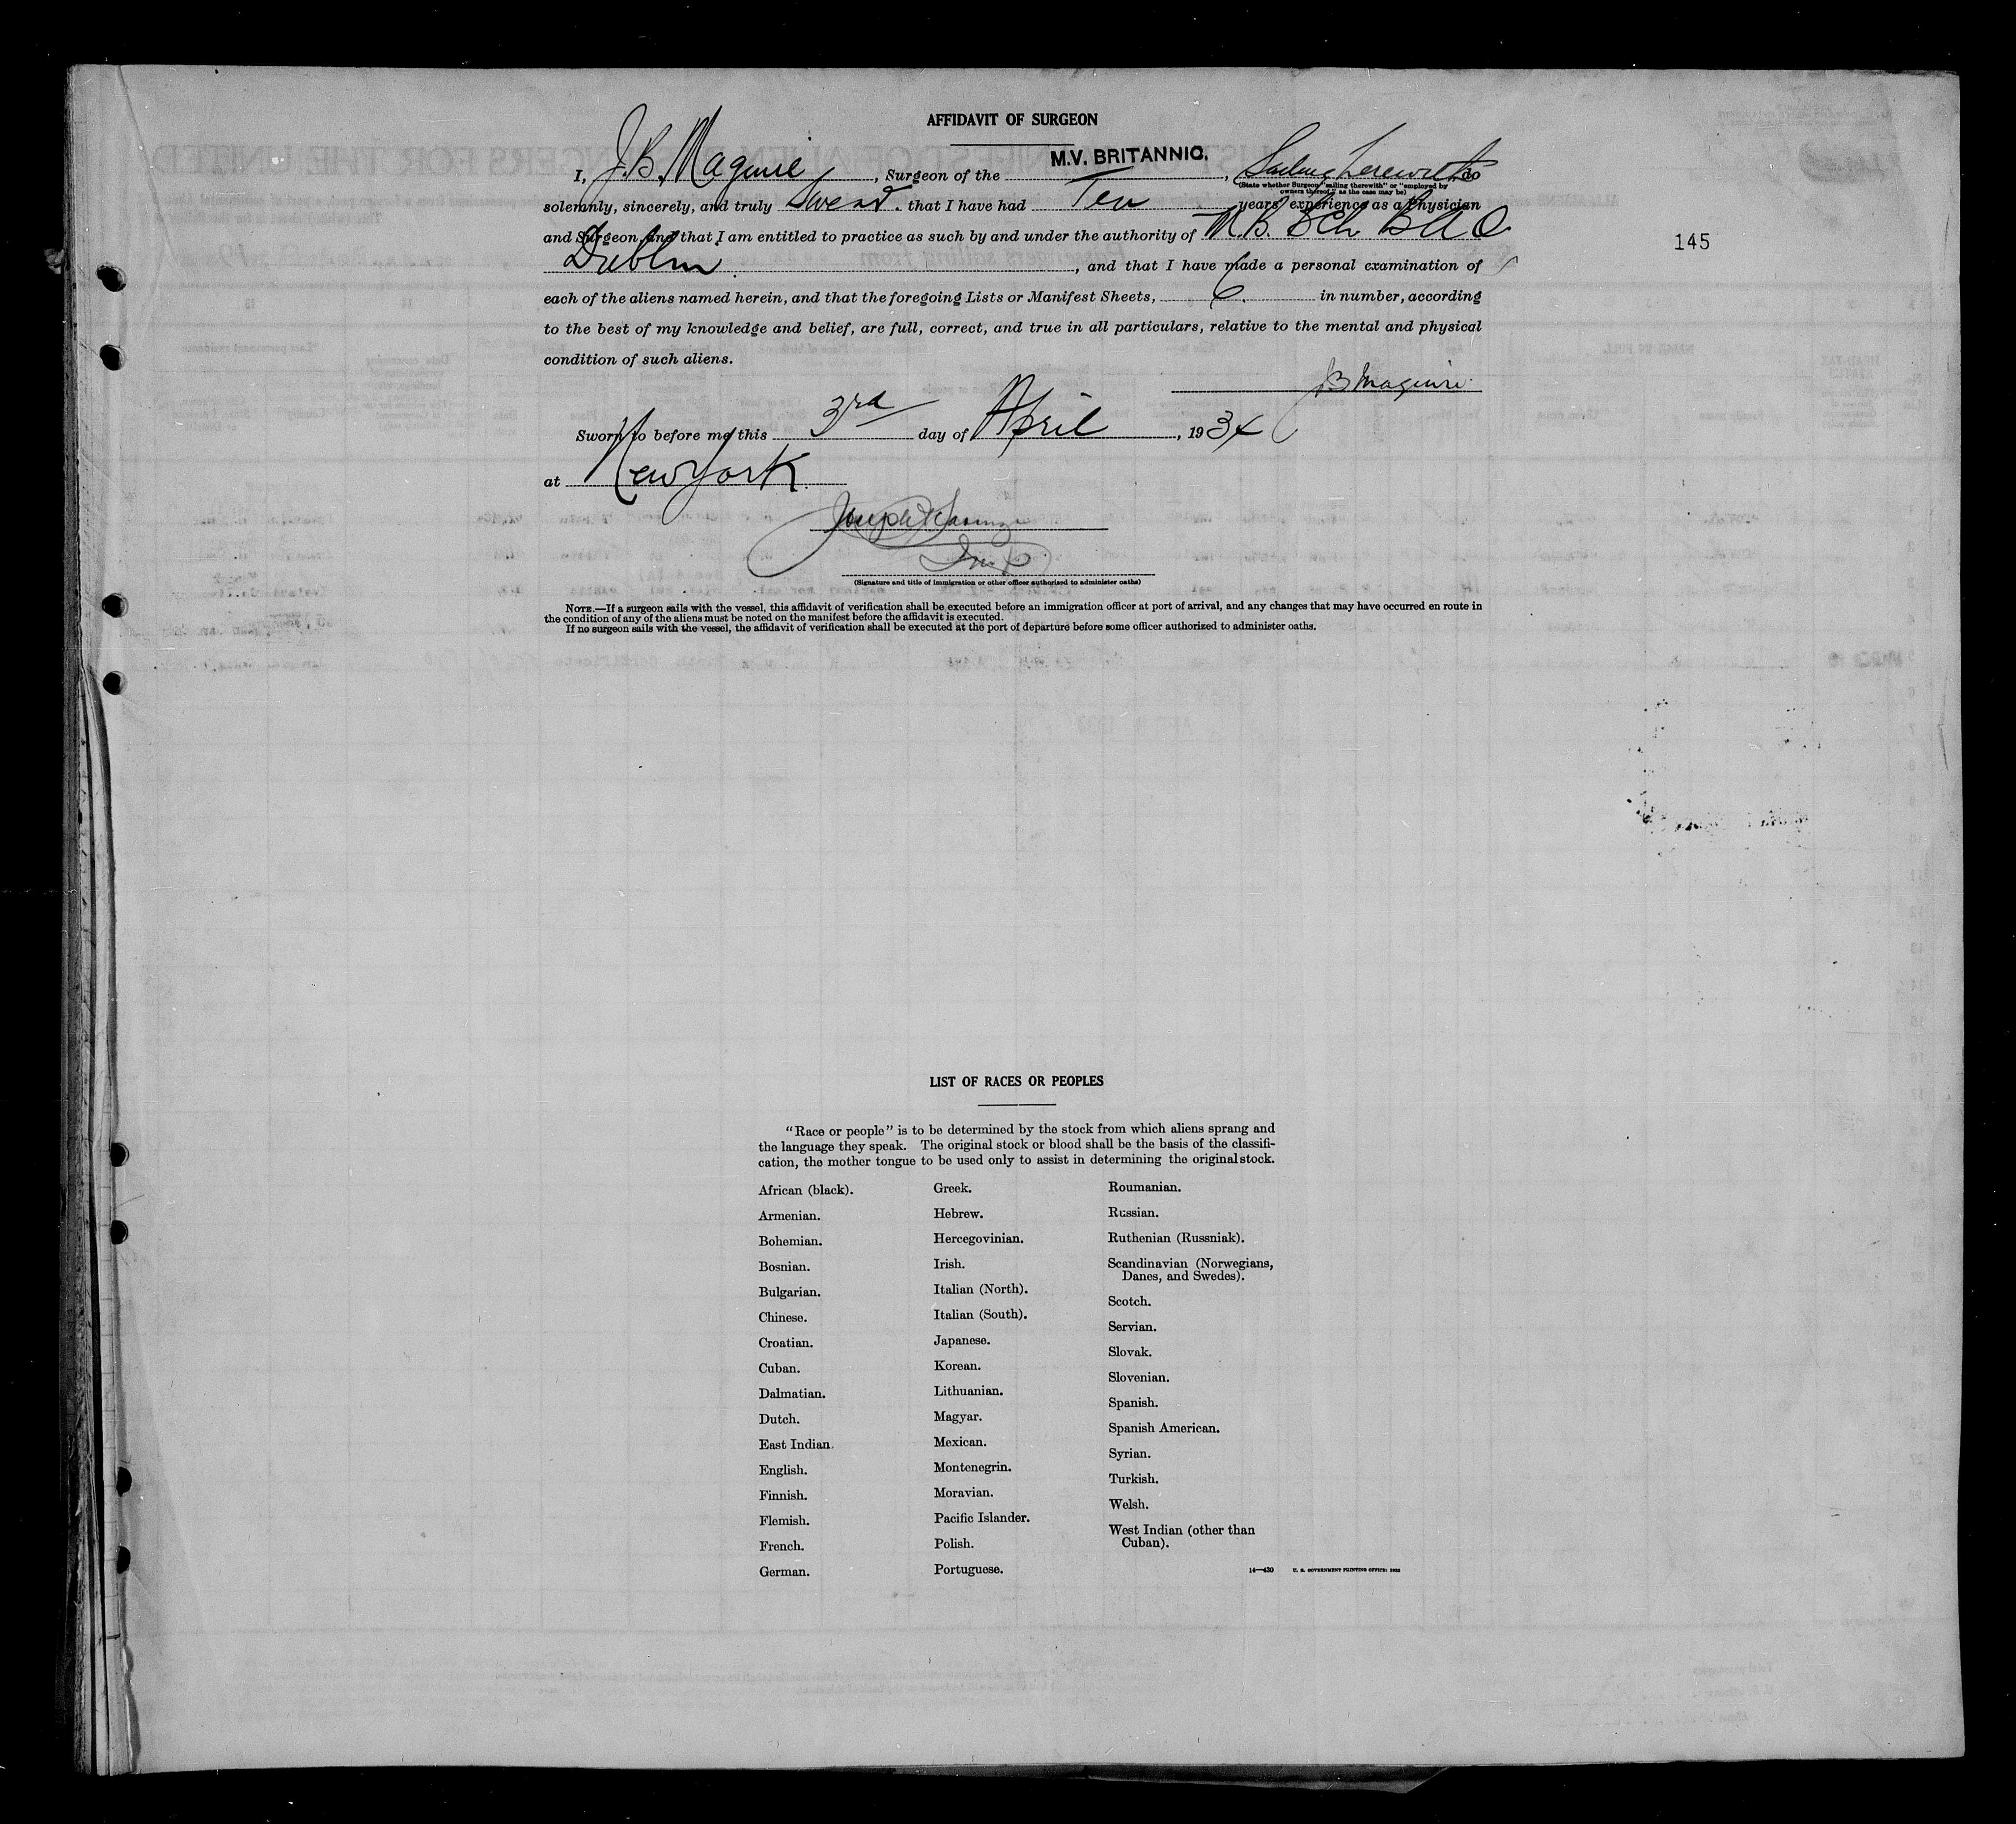 AFFIDAVIT OF SURGEON
I, J.B. Maguire, Surgeon of the M.V. BRITANNIC., Sailing therewith, do
(State whether Surgeon "sailing therewith" or "employed by
owners thereof," as the case may be)
solemnly, sincerely, and truly swear. that I have had Ten years' experience as a Physician
and Surgeon, and that I am entitled to practice as such by and under the authority of M.B. BCh BAO
Dublin., and that I have made a personal examination of
each of the aliens named herein, and that the foregoing Lists or Manifest Sheets, 6. in number, according
to the best of my knowledge and belief, are full, correct, and true in all particulars, relative to the mental and physical
condition of such aliens.
JB Maguire.
Sworn to before me this 3rd day of April, 1934
at New York.
(Signature and title of immigration or other officer authorized to administer oaths)
NOTE.—If a surgeon sails with the vessel, this affidavit of verification shall be executed before an immigration officer at port of arrival, and any changes that may have occurred en route in
the condition of any of the aliens must be noted on the manifest before the affidavit is executed.
If no surgeon sails with the vessel, the affidavit of verification shall be executed at the port of departure before some officer authorized to administer oaths.
145
LIST OF RACES OR PEOPLES
"Race or people" is to be determined by the stock from which aliens sprang and
the language they speak. The original stock or blood shall be the basis of the classifi-
cation, the mother tongue to be used only to assist in determining the original stock.
African (black).
Armenian.
Bohemian.
Bosnian.
Bulgarian.
Chinese.
Croatian.
Cuban.
Dalmatian.
Dutch.
East Indian.
English.
Finnish.
Flemish.
French.
German.
Greek.
Hebrew.
Hercegovinian.
Irish.
Italian (North).
Italian (South).
Japanese.
Korean.
Lithuanian.
Magyar.
Mexican.
Montenegrin.
Moravian.
Pacific Islander.
Polish.
Portuguese.
Roumanian.
Russian.
Ruthenian (Russniak).
Scandinavian (Norwegians,
Danes, and Swedes).
Scotch.
Servian.
Slovak.
Slovenian.
Spanish.
Spanish American.
Syrian.
Turkish.
Welsh.
West Indian (other than
Cuban).
14—430 U. S. GOVERNMENT PRINTING OFFICE: